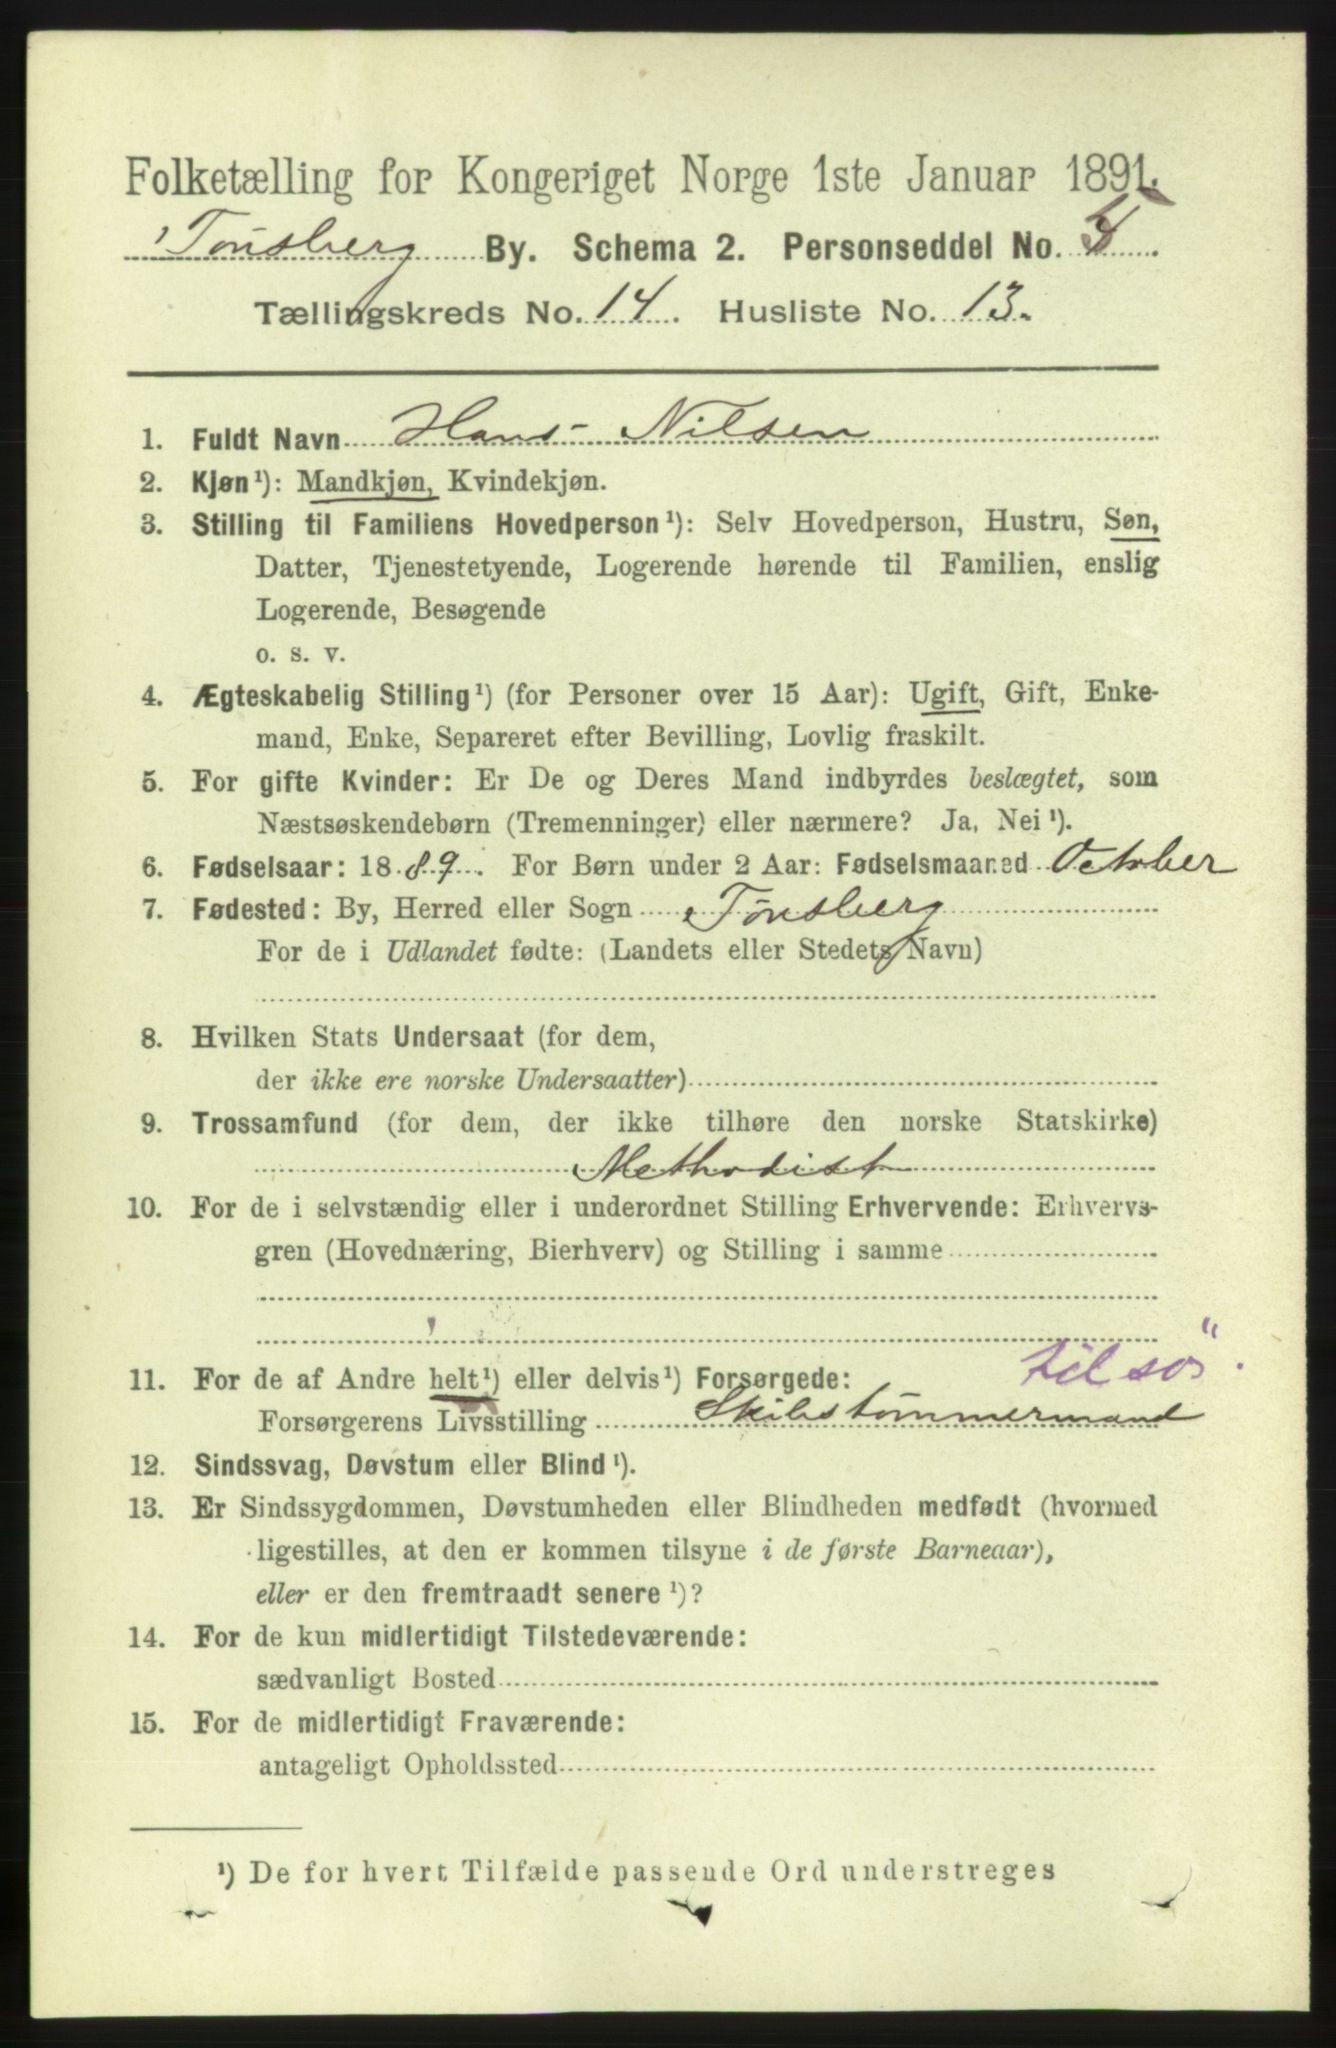 Folketælling for Kongeriget Norge 1ste Januar 1891.
Tønsberg By. Schema 2. Personseddel No.
Tællingskreds No. 14. Husliste No. 13.
1. Fuldt Navn Hans Nilsen
2. Kjøn¹): Mandkjøn, Kvindekjøn.
3. Stilling til Familiens Hovedperson¹): Selv Hovedperson, Hustru, Søn,
Datter, Tjenestetyende, Logerende hørende til Familien, enslig
Logerende, Besøgende
o. s. v.
4. Ægteskabelig Stilling¹) (for Personer over 15 Aar): Ugift, Gift, Enke-
mand, Enke, Separeret efter Bevilling, Lovlig fraskilt.
5. For gifte Kvinder: Er De og Deres Mand indbyrdes beslægtet, som
Næstsøskendebørn (Tremenninger) eller nærmere? Ja, Nei¹).
6. Fødselsaar: 1889. For Børn under 2 Aar: Fødselsmaaned October
7. Fødested: By, Herred eller Sogn Tønsberg
For de i Udlandet fødte: (Landets eller Stedets Navn)
8. Hvilken Stats Undersaat (for dem,
der ikke ere norske Undersaatter)
9. Trossamfund (for dem, der ikke tilhøre den norske Statskirke)
Methodist
10. For de i selvstændig eller i underordnet Stilling Erhvervende: Erhvervs-
gren (Hovednæring, Bierhverv) og Stilling i samme
til søs
11. For de af Andre helt¹) eller delvis¹) Forsørgede:
Forsørgerens Livsstilling Skibstømmermand
12. Sindssvag, Døvstum eller Blind¹).
13. Er Sindssygdommen, Døvstumheden eller Blindheden medfødt (hvormed
ligestilles, at den er kommen tilsyne i de første Barneaar),
eller er den fremtraadt senere¹)?
14. For de kun midlertidigt Tilstedeværende:
sædvanligt Bosted
15. For de midlertidigt Fraværende:
antageligt Opholdssted
¹) De for hvert Tilfælde passende Ord understreges